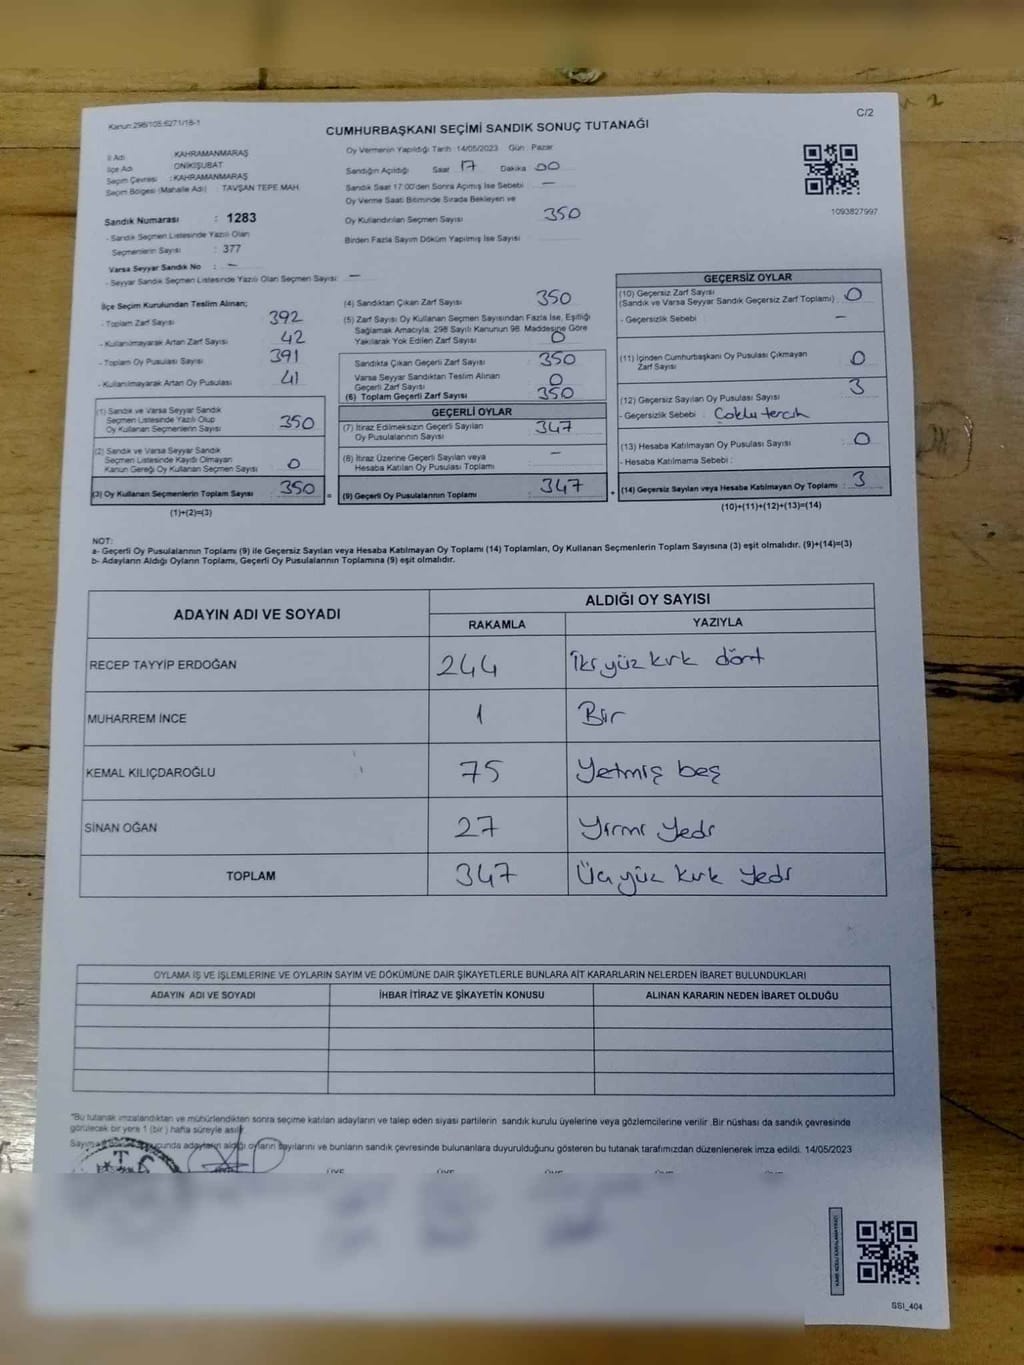 Kanun: 298/105.6271/18-1
C/2
CUMHURBAŞKANI SEÇİMİ SANDIK SONUÇ TUTANAĞI
İl Adı : KAHRAMANMARAŞ
İlçe Adı : ONİKİŞUBAT
Seçim Çevresi : KAHRAMANMARAŞ
Seçim Bölgesi (Mahalle Adı) : TAVŞAN TEPE MAH.
Sandık Numarası : 1283
- Sandık Seçmen Listesinde Yazılı Olan
Seçmenlerin Sayısı : 377
Varsa Seyyar Sandık No : -
- Seyyar Sandık Seçmen Listesinde Yazılı Olan Seçmen Sayısı: -
Oy Vermenin Yapıldığı Tarih :14/05/2023 Gün : Pazar
Sandığın Açıldığı Saat 17 Dakika 00
Sandık Saat 17:00'den Sonra Açımış İse Sebebi -
Oy Verme Saati Bitiminde Sırada Bekleyen ve
Oy Kullandırılan Seçmen Sayısı 350
Birden Fazla Sayım Döküm Yapılmış İse Sayısı
1093827997
İlçe Seçim Kurulundan Teslim Alınan;
- Toplam Zarf Sayısı 392
- Kullanılmayarak Artan Zarf Sayısı 42
- Toplam Oy Pusulası Sayısı 391
- Kullanılmayarak Artan Oy Pusulası 41
(1) Sandık ve Varsa Seyyar Sandık
Seçmen Listesinde Yazılı Olup
Oy Kullanan Seçmenlerin Sayısı 350
(2) Sandık ve Varsa Seyyar Sandık
Seçmen Listesinde Kaydı Olmayan
Kanun Gereği Oy Kullanan Seçmen Sayısı 0
(3) Oy Kullanan Seçmenlerin Toplam Sayısı 350 =
(1)+(2)=(3)
(4) Sandıktan Çıkan Zarf Sayısı 350
(5) Zarf Sayısı Oy Kullanan Seçmen Sayısından Fazla İse, Eşitliği
Sağlamak Amacıyla; 298 Sayılı Kanunun 98. Maddesine Göre
Yakılarak Yok Edilen Zarf Sayısı 0
Sandıkta Çıkan Geçerli Zarf Sayısı 350
Varsa Seyyar Sandıktan Teslim Alınan
Geçerli Zarf Sayısı 0
(6) Toplam Geçerli Zarf Sayısı 350
GEÇERLİ OYLAR
(7) İtiraz Edilmeksizin Geçerli Sayılan
Oy Pusulalarının Sayısı 347
(8) İtiraz Üzerine Geçerli Sayılan veya
Hesaba Katılan Oy Pusulası Toplamı -
(9) Geçerli Oy Pusulalarının Toplamı 347 +
GEÇERSİZ OYLAR
(10) Geçersiz Zarf Sayısı
(Sandık ve Varsa Seyyar Sandık Geçersiz Zarf Toplamı) : 0
- Geçersizlik Sebebi : -
(11) İçinden Cumhurbaşkanı Oy Pusulası Çıkmayan
Zarf Sayısı : 0
(12) Geçersiz Sayılan Oy Pusulası Sayısı : 3
- Geçersizlik Sebebi : Çoklu tercih
(13) Hesaba Katılmayan Oy Pusulası Sayısı : 0
- Hesaba Katılmama Sebebi :
(14) Geçersiz Sayılan veya Hesaba Katılmayan Oy Toplamı : 3
(10)+(11)+(12)+(13)=(14)
NOT:
a- Geçerli Oy Pusulalarının Toplamı (9) ile Geçersiz Sayılan veya Hesaba Katılmayan Oy Toplamı (14) Toplamları, Oy Kullanan Seçmenlerin Toplam Sayısına (3) eşit olmalıdır. (9)+(14)=(3)
b- Adayların Aldığı Oyların Toplamı, Geçerli Oy Pusulalarının Toplamına (9) eşit olmalıdır.
ADAYIN ADI VE SOYADI ALDIĞI OY SAYISI
RAKAMLA YAZIYLA
RECEP TAYYİP ERDOĞAN 244 İki yüz kırk dört
MUHARREM İNCE 1 Bir
KEMAL KILIÇDAROĞLU 75 Yetmiş beş
SİNAN OĞAN 27 Yirmi Yedi
TOPLAM 347 Üç yüz kırk Yedi
OYLAMA İŞ VE İŞLEMLERİNE VE OYLARIN SAYIM VE DÖKÜMÜNE DAİR ŞİKAYETLERLE BUNLARA AİT KARARLARIN NELERDEN İBARET BULUNDUKLARI
ADAYIN ADI VE SOYADI İHBAR İTİRAZ VE ŞİKAYETİN KONUSU ALINAN KARARIN NEDEN İBARET OLDUĞU
"Bu tutanak imzalandıktan ve mühürlendikten sonra seçime katılan adayların ve talep eden siyasi partilerin sandık kurulu üyelerine veya gözlemcilerine verilir. Bir nüshası da sandık çevresinde
görülecek bir yere 1 (bir) hafta süreyle asılır.
adayların aldığı oyların sayılarını ve bunların sandık çevresinde bulunanlara duyurulduğunu gösteren bu tutanak tarafımızdan düzenlenerek imza edildi. 14/05/2023
SSI_404